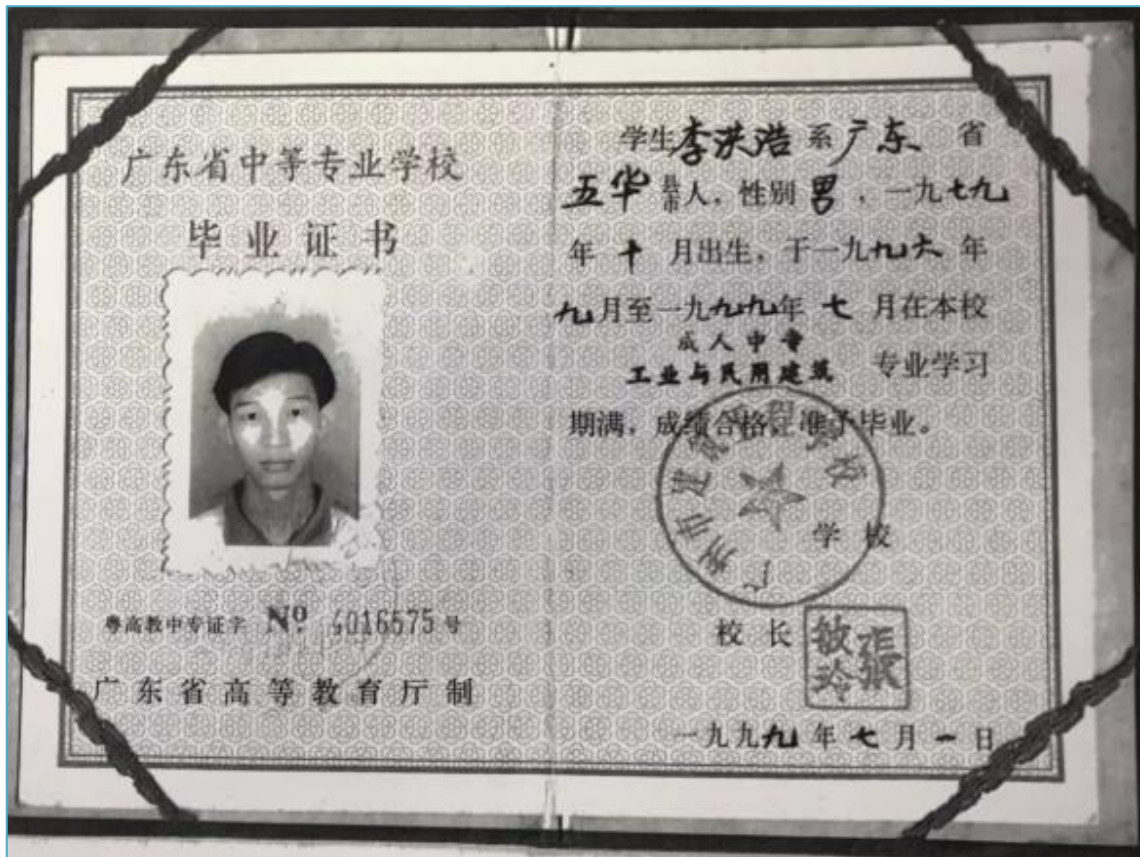 广东省中等专业学校
毕业证书
粤高教中专证字 Nº 4016575 号
广东省高等教育厅制
学生李洪浩系广东省
五华县市人,性别男,一九七九
年十月出生,于一九九六年
九月至一九九九年七月在本校
成人中专
工业与民用建筑 专业学习
期满,成绩合格,准予毕业。
广州市建筑工程学校
学校
校长 张敏玲
一九九九年七月一日